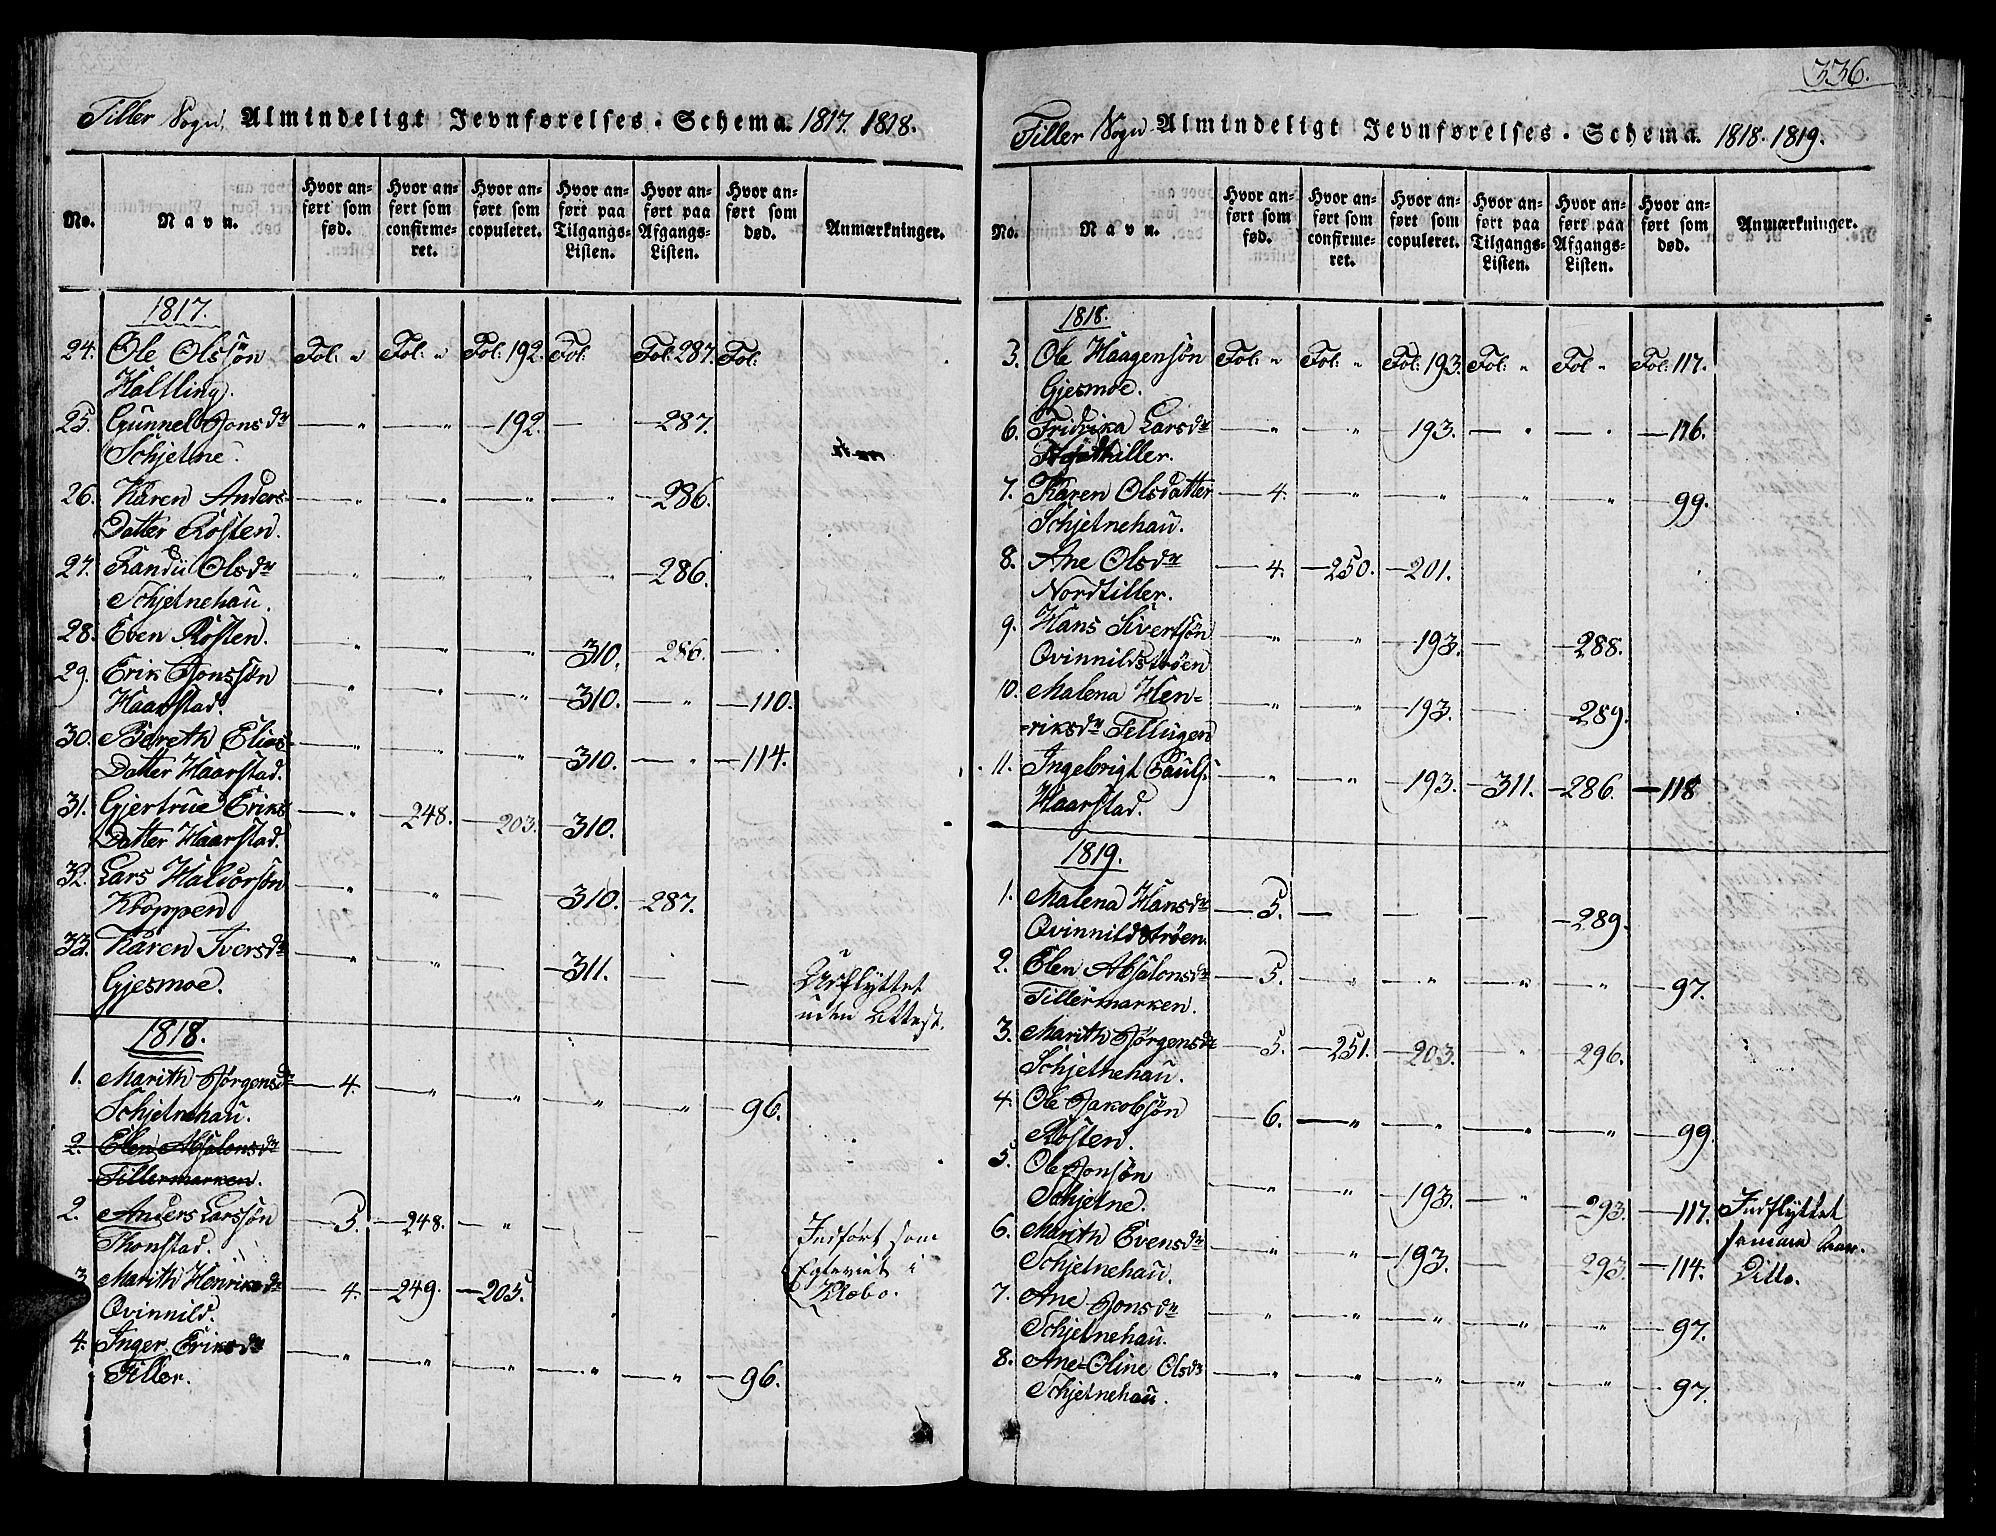 Tiller Sogn. Almindeligt Jevnførelses-Schema. 1817. 1818.
No. | Navn. | Hvor anført som fød. | Hvor anført som confirmeret. | Hvor anført som copuleret. | Hvor anført paa Tilgangs-Listen. | Hvor anført paa Afgangs-Listen. | Hvor anført som død. | Anmærkninger.
1817.
24. Ole Olssøn Fol: " Fol: " Fol: 192. Fol: Fol: 287. Fol:
Haltling.
25. Gunnel Jonsdr — " — " — 192. — — 287.
Schjelne.
26. Karen Anders- — " — " " " — 286.
Datter Røsten.
27. Randii Olsdr — " — " " " — 286.
Schjelnehau.
28. Even Røsten. — " — " — " — 310. 286. —
29. Erik Jonssøn — " — " — " — 310. — " — 110.
Haarstad.
30. Bereth Elias- — " — " — " — 310. — " — 114.
Datter Haarstad.
31. Gjertrue Eriks — " — 248. — 203. — 310.
Datter Haarstad.
32. Lars Haldorsøn — " — " — — 310. — 287.
Kloppen
33. Karen Iversdr — " — " — — 311. — —
Gjesmoe.
Udflyttet
uden Attest.
1818.
1. Marith Jørgensdr — 4. — " — " — " — " — 96.
Schjelnehau.
2. Elen Absalonsdr —
Tillermarken.
2. Anders Larssøn — 3. — 248. — " — — —
Thonstad.
Indført som
i
Klæbo.
3. Marith Henriksdr — 4. — 249. — 205.
Qvinnild.
4. Inger Eriksdr — " — " — " — " — " — 96.
Tiller.
336.
Tiller Sogn Almindeligt Jevnførelses-Schema. 1818. 1819.
No. | Navn. | Hvor anført som fød. | Hvor anført som confirmeret. | Hvor anført som copuleret. | Hvor anført paa Tilgangs-Listen. | Hvor anført paa Afgangs-Listen. | Hvor anført som død. | Anmærkninger.
1818.
5. Ole Haagensøn Fol: " Fol: " Fol: 193. Fol: " Fol " Fol: 117.
Gjesmoe.
6. Fridrika Larsdr — " — " — 193. — " — " — 116.
7. Karen Olsdatter — 4. — " — " — " " — 99.
Schjelnehau.
8. Ane Olsdr — 4. — 250. — 201.
Nordtiller.
9. Hans Sivertsøn — " — " — 193. — — 288.
Qvinnildstrøen
10. Malena Hen- — " — " — 193. — — 289.
riksdr Tellugen
11. Ingebrigt Pauls: — " — " — 193. — 311. — 286. — 118
Haarstad.
1819.
1. Malena Hansdr — 5. — — — — 289.
Qvinnildstrøen.
2. Elen Absalonsdr — 5. — " — " — " — " — 97.
Tillermarken.
3. Marith Jørgensdr — 5. — 251. — 203. — " — 296.
Schjelnehau.
4. Ole Jakobsøn — 6. — " — " — " — " — 99.
Røsten.
5. Ole Jonsøn — " — " — 193. — " — 293. — 117. Indflyttet
Schjelne. samme Aar.
6. Marith Evensdr — " — " — 193. — — 293. — 114. Ditto.
Schjelnehau.
7. Ane Jonsdr — " — " — " — " — " — 97.
Schjelnehau.
8. Ane-Oline Olsdr — " — " — " — " — " — 97.
Schjelnehau.